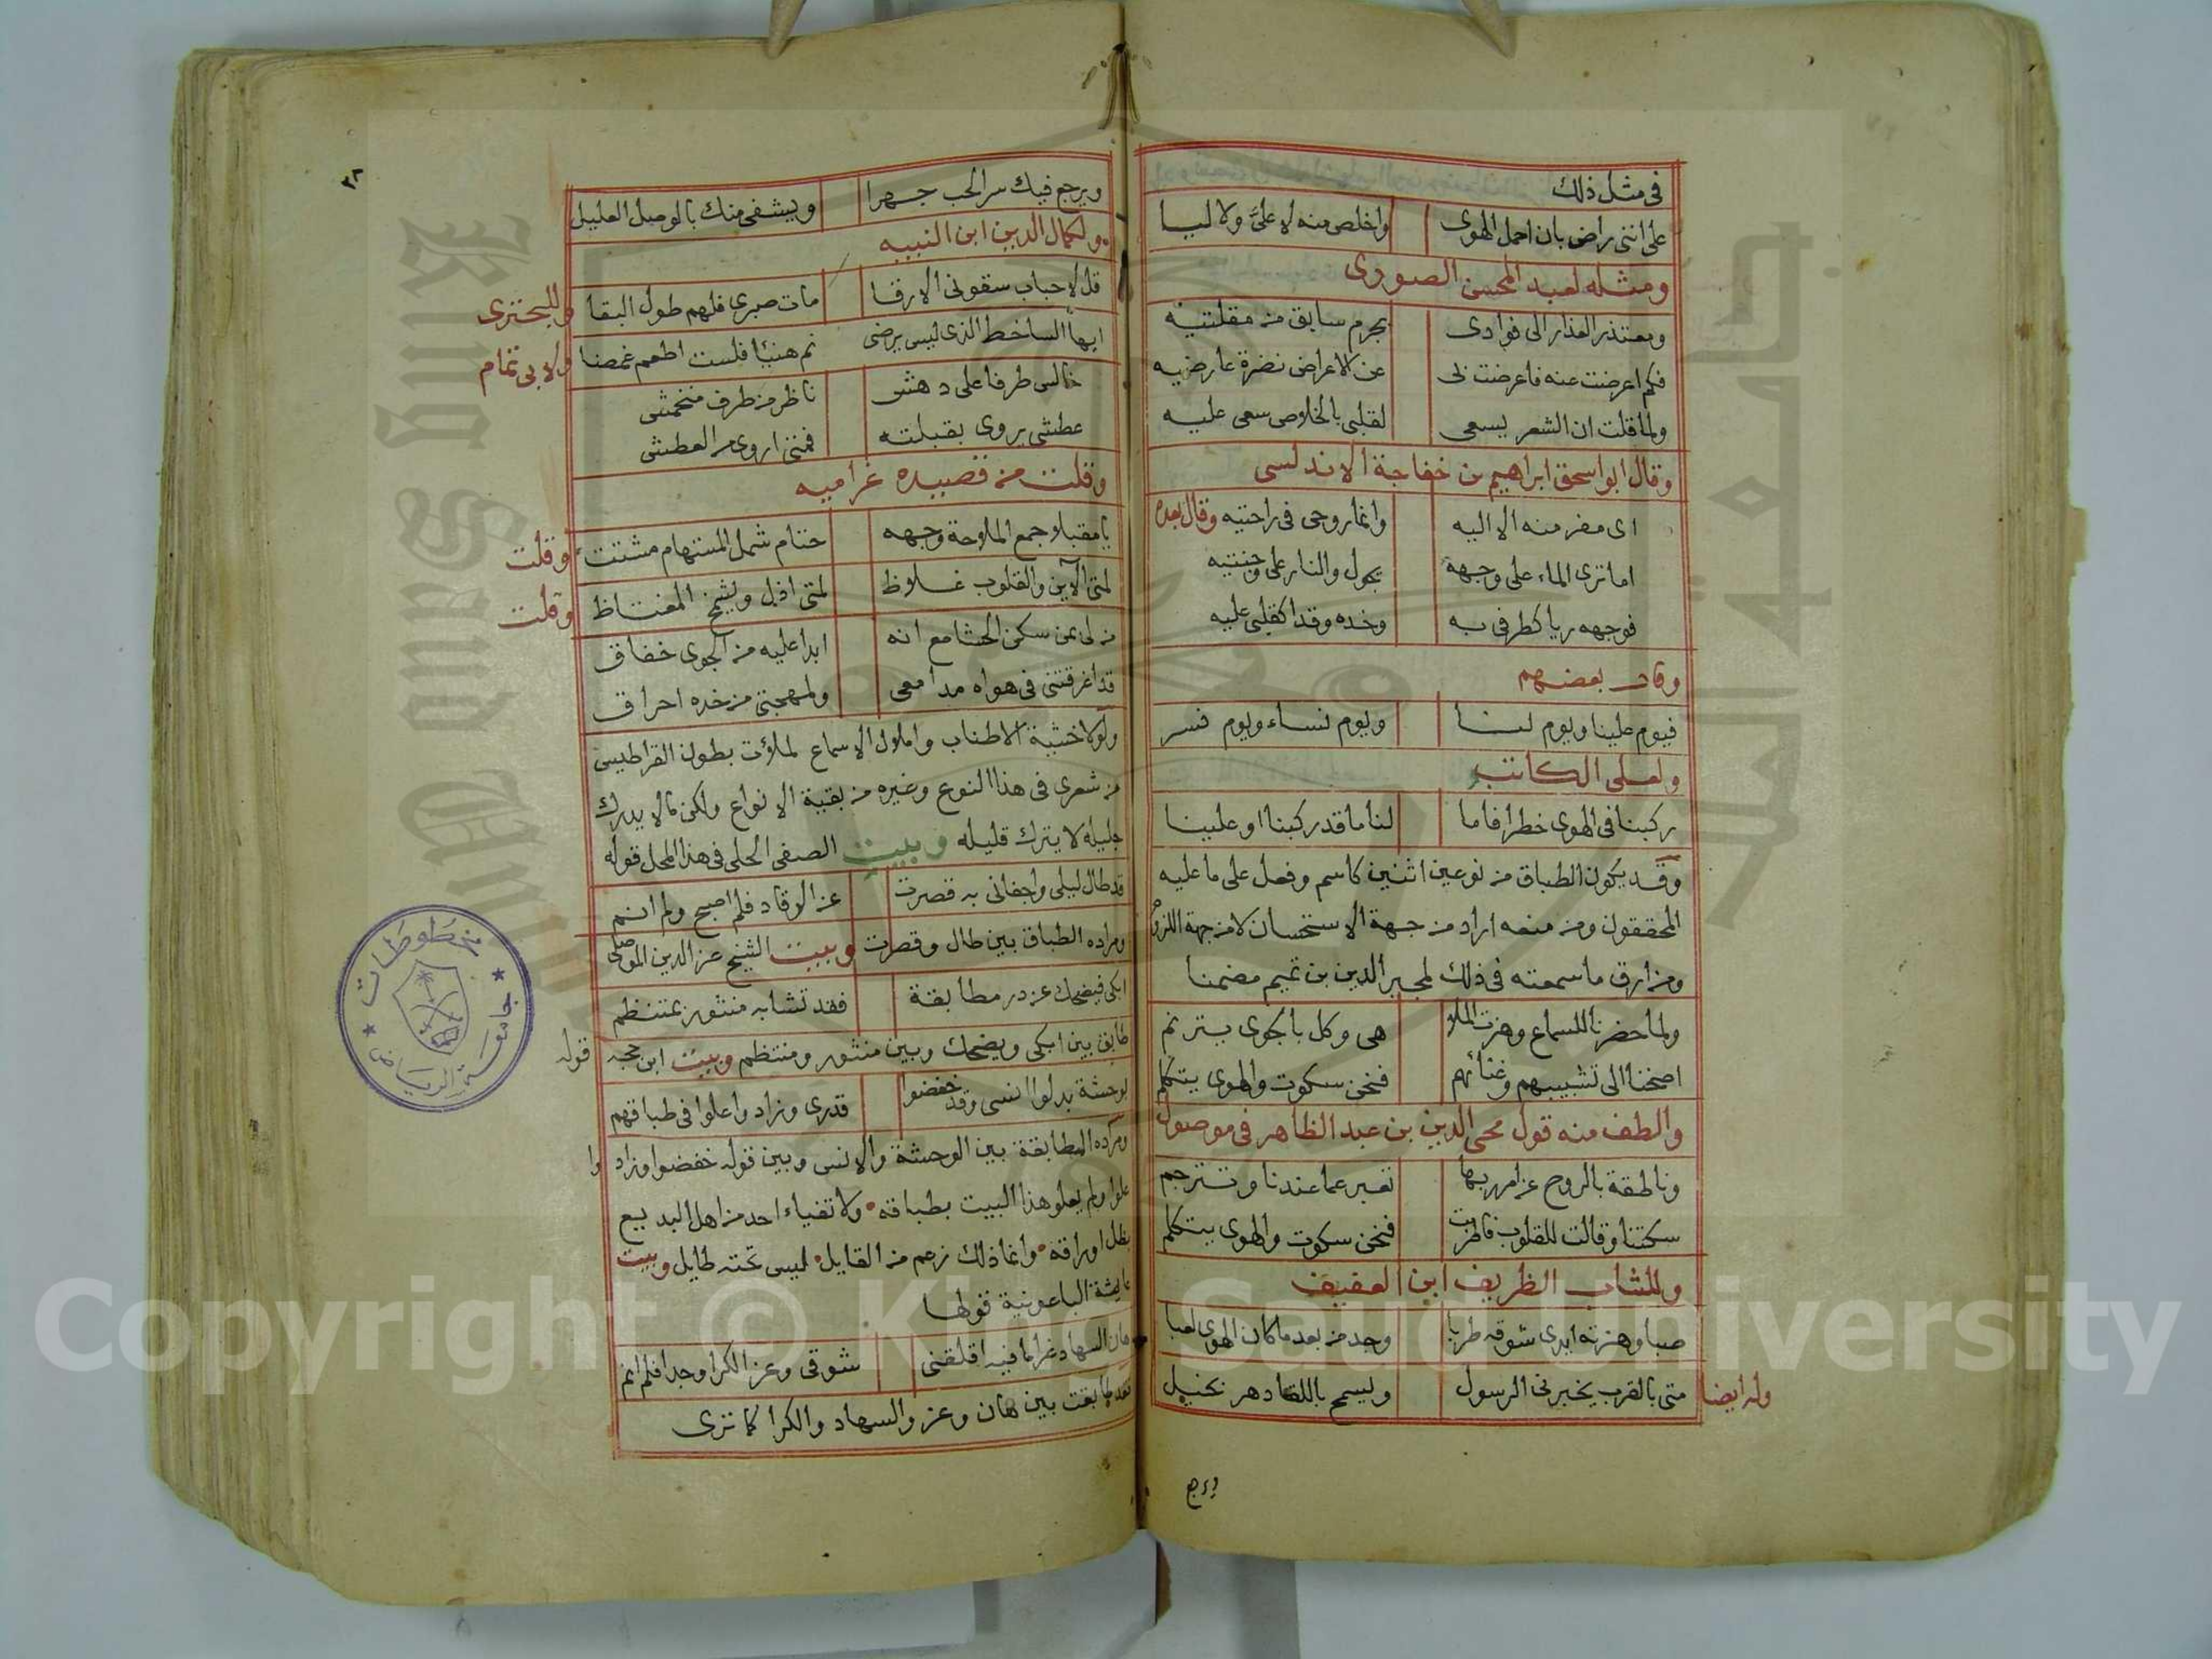 في مثل ذلك
على انني راض بان احمل الهوى واخلص منه لا علي ولا ليا
ومثله لعبد المحسن الصورى
ومعتذر العذار الى فوادى بجرم سابق من مقلتيه
فكم اعرضت عنه فاعرضت بى عن الاعراض نضرة عارضيه
ولما قلت ان الشعر يسعى لقلبى بالخلاص سعى عليه
وقال ابو اسحق ابراهيم بن خفاجة الاندلسى
اى مفر منه الا اليه وانما روحى فى راحتيه وقال بعده
اما ترى الماء على وجهه يجول والنار على وجنتيه
فوجهه ريا كطرفى به وخده وقدا كقلبى عليه
وقال بعضهم
فيوم علينا ويوم لنا ويوم نساء ويوم نسر
ولعلى الكاتب
ركبنا فى الهوى خطرا فاما لنا ما قد ركبنا او علينا
وقد يكون الطباق من نوعين اثنين كاسم وفعل على ما عليه
المحققون ومن منعه اراد من جهة الاستحسان لا من جهة اللزوم
ومن ارق ما سمعته فى ذلك لمجير الدين بن تميم مضمنا
ولما حضرنا للسماع وهزت الملا هى وكل بالجوى يترنم
اصخنا الى تشبيبهم وغنائهم فنحن سكوت والهوى يتكلم
والطف منه قول محى الدين بن عبد الظاهر فى موصول
وناطقة بالروح عن امر ربها تعبر عما عندنا وتترجم
سكتنا وقالت للقلوب فاطربت فنحن سكوت والهوى يتكلم
وللشاب الظريف ابن العفيف
صبا وهزته ايدى شوقه طربا وجد من بعد ما كان الهوى لعبا
وله ايضا
متى بالقرب يخبرنى الرسول ويسمح باللقا دهر بخيل
ويرجع
٣٨
ويرجع فيك سر الحب جهرا ويشفى منك بالوصل العليل
ولكمال الدين ابن النبيه
قل لاحباب سقونى الارقا مات صبرى فلهم طول البقا
وللبحترى
ايها الساخط الذى ليس يرضى نم هنيئا فلست اطعم غمضا
ولابى تمام
خالس طرفا على دهش ناظر من طرف منخمش
عطشى يروى بقبلته فمتى اروى من العطش
وقلت من قصيده غراميه
يا مقبلا وجمع الملاوحة وجهه حتام شمل المستهام مشتت
وقلت
لمتى الاين والقلوب غلاظ لمتى اذل ويشمخ المغتاظ
وقلت
من لى بمن سكن الحشا مع انه ابدا عليه من الجوى خفاق
قد اغرقتنى فى هواه مدامعى ولمهجتى من خده احراق
ولولا خشية الاطناب واملال الاسماع لملؤت بطون القراطيس
من شعرى فى هذا النوع وغيره من بقية الانواع ولكن ما لا يدرك
جليله لا يترك قليله وبيت الصفى الحلى فى هذا المحل قوله
قد طال ليلى واجفانى به قصرت عن الرقاد فلم اصبح ولم انم
ومراده الطباق بين طال وقصرت وبيت الشيخ عز الدين الموصلى
ابكى فيضحك عن در مطابقة فقد تشابه منثور بمنتظم
طابق بين ابكى ويضحك وبين منثور ومنتظم وبيت ابن حجه قوله
بوحشة بدلوا انسى وقد خفضوا قدرى وزاد واعلوا فى طباقهم
ومراده المطابقة بين الوحشة والانس وبين قوله خفضوا وزاد وا
علوا ولم يعلو هذا البيت بطباقه ولا تفياء احد من اهل البديع
بظل اوراقه وانما ذلك زعم من القايل ليس تحته طايل وبيت
عايشة الباعونية قولها
هان السهاد غراما فيه اقلقنى شوقى وعز الكرا وجدا فلم انم
فقد طابقت بين هان وعز والسهاد والكرا كما ترى
مخطوطات
جامعة الرياض
Copyright © King Saud University